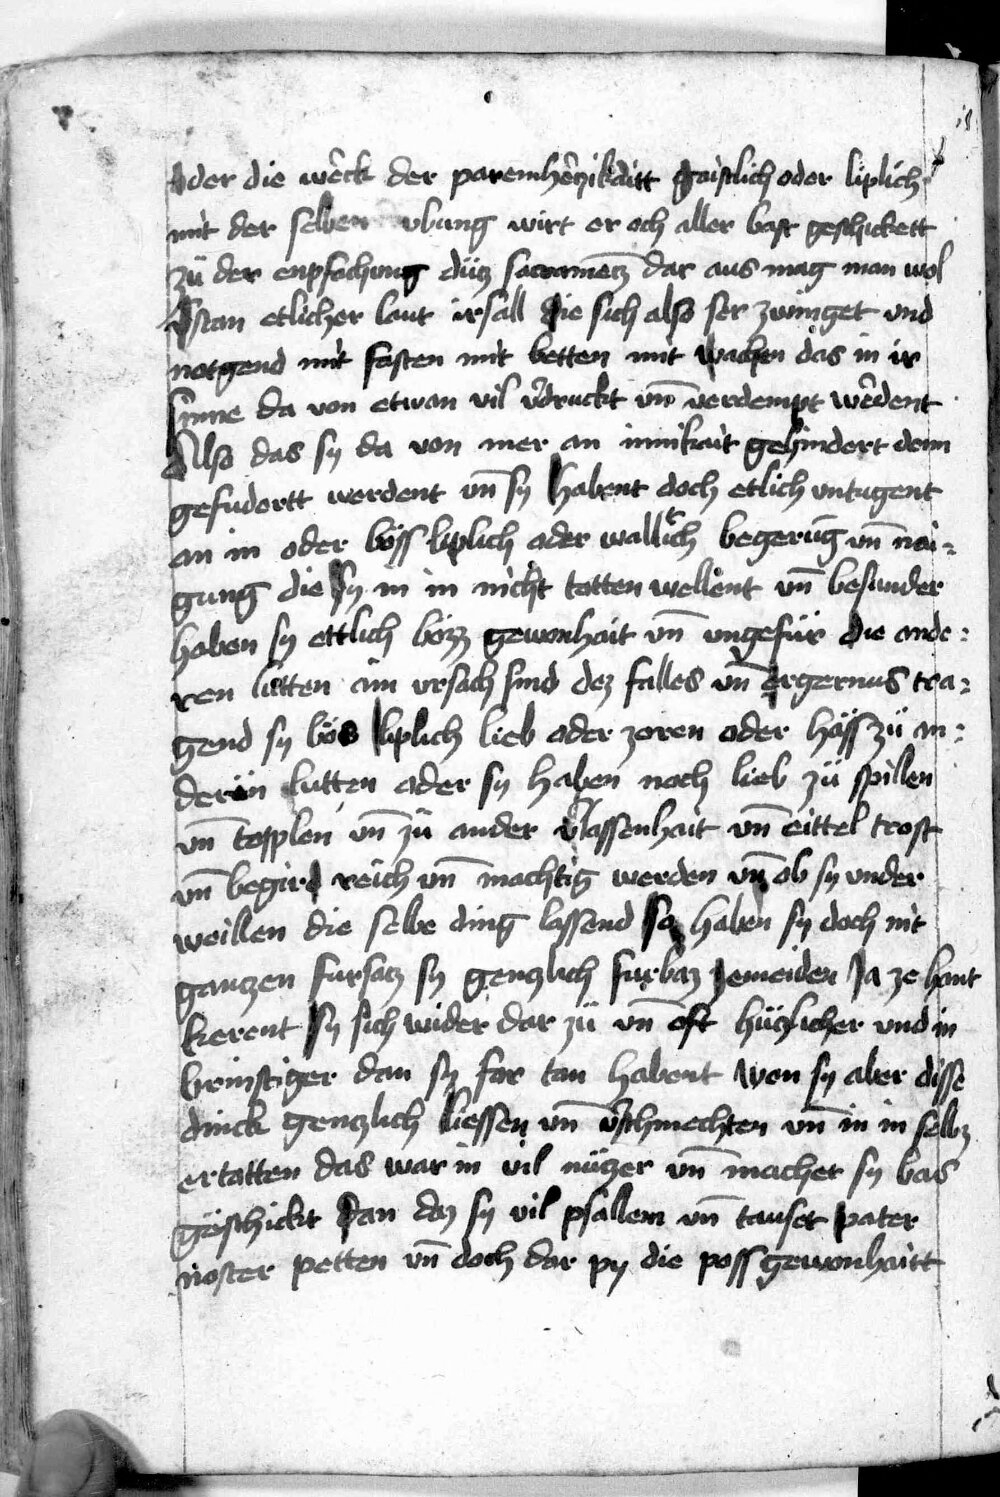 oder die wêck der paremhêczikaitt gaistlich oder liplich
mit der selben vbung wirt er och aller bast geschickett
zü der enpfachung dücz sacramêtz dar aus mag man wol
v̂stan etlicher laut irsall die sich also ser zwinget vnd
notgend mit fasten mit betten mit wachen das in ir
sinne da von etwan vil v̂druckt vn̄ verdempt wêdent
Also das sy da von mer an innikait gehindert denn
gefudortt werdent vn̄ sy habent doch etlich vntugent
an in oder böss liplich oder wallich begerūg vn̄ nai-
gung die sy in in nicht totten wellent vn̄ besunder
haben sy ettlich bözz gewonhait vn̄ vngefür die ande-
ren lütten ain vrsach sind dez falles vn̄ ergernus tra-
gend sy bös liplich lieb oder zoren oder häss zü an-
derün lutten oder sy haben noch lieb zü spillen
vn̄ topplen vn̄ zü ander v̂lassenhait vn̄ eittel trost
vn̄ begird reich vn̄ machtig werden vn̄ ob sy vnder
weillen die selbe ding lassend so haben sy doch nit
ganczen fursatz sy genczlich furbaz zemeiden Ja ze hant
kerent sy sich wider dar zü vn̄ oft hüczlicher vnd in
brinstiger dan sy for tan habent Wen sy aber disse
dinck genczlich liessen vn̄ v̂schmechten vn̄ in in selbz
ertotten das war in vil nüczer vn̄ machet sy bas
göschickt dan daz sy vil psallem vn̄ tauset pater
noster petten vn̄ doch dar py die poss gewonhaitt